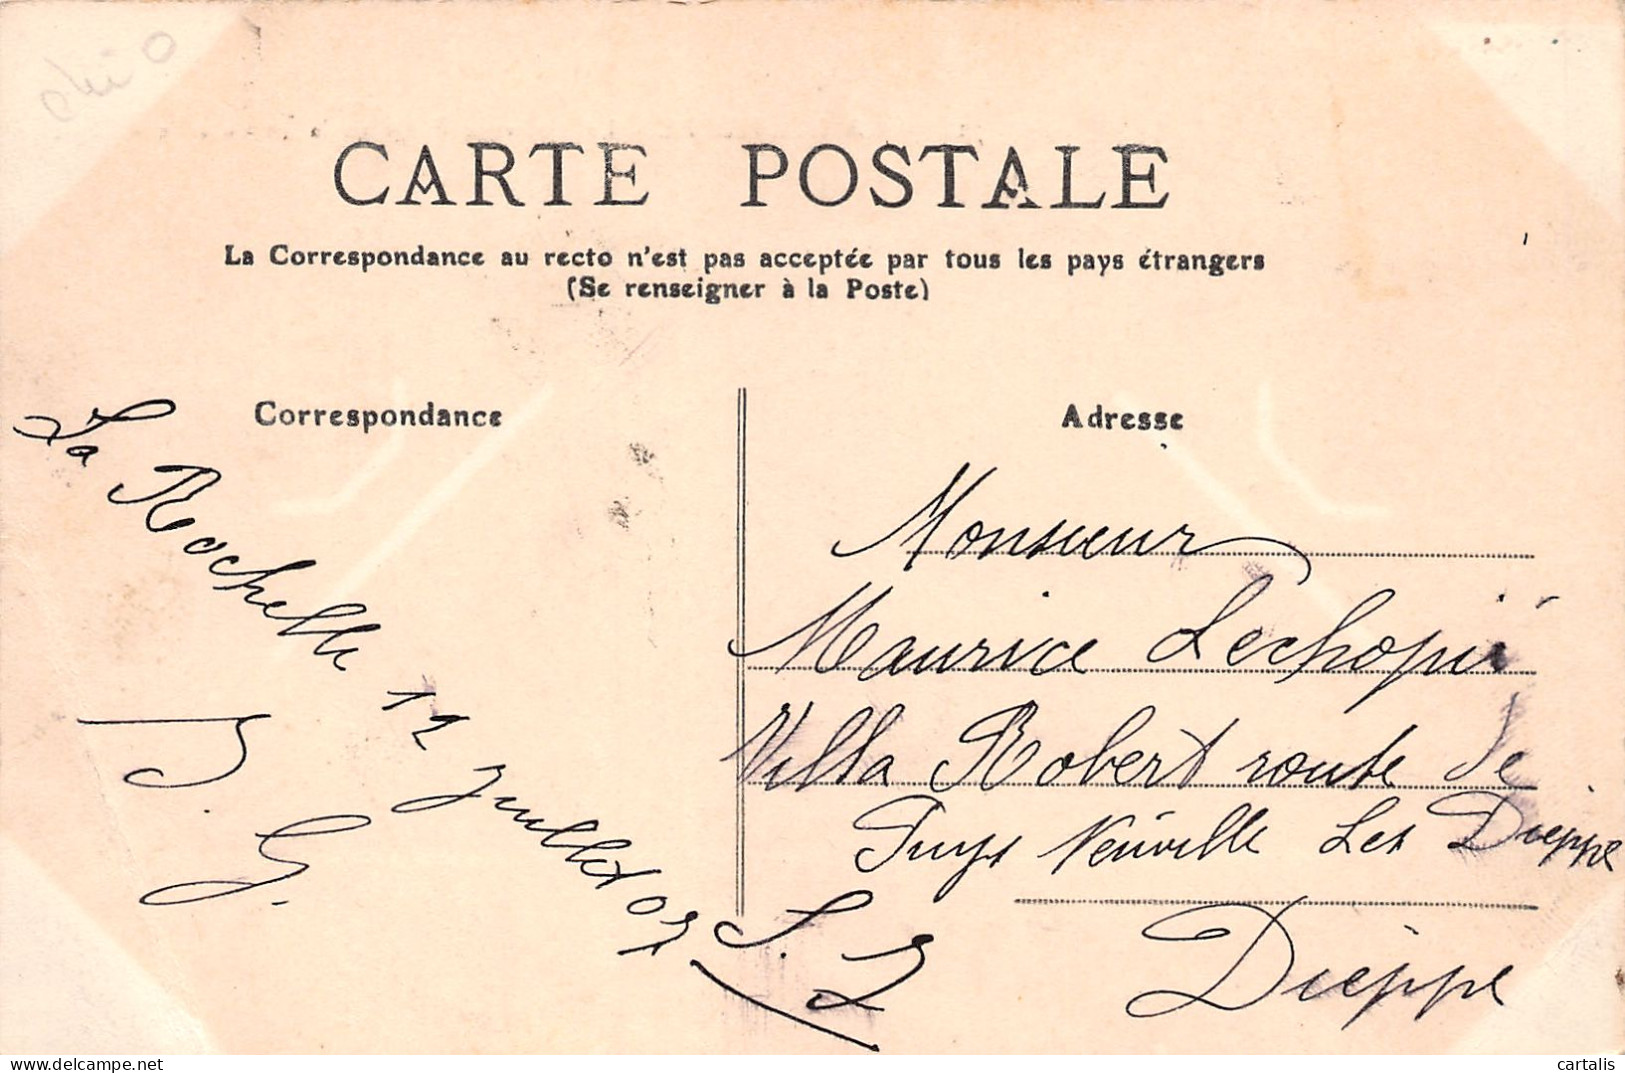 CARTE POSTALE
La Correspondance au recto n'est pas acceptée par tous les pays étrangers
(Se renseigner à la Poste)
Correspondance
La Rochelle 12 juillet 07
Adresse
Monsieur
Maurice Lechopié
Villa Robert route de
Puys Neuville Les Dieppe
Dieppe
delcampe.net
cartalis